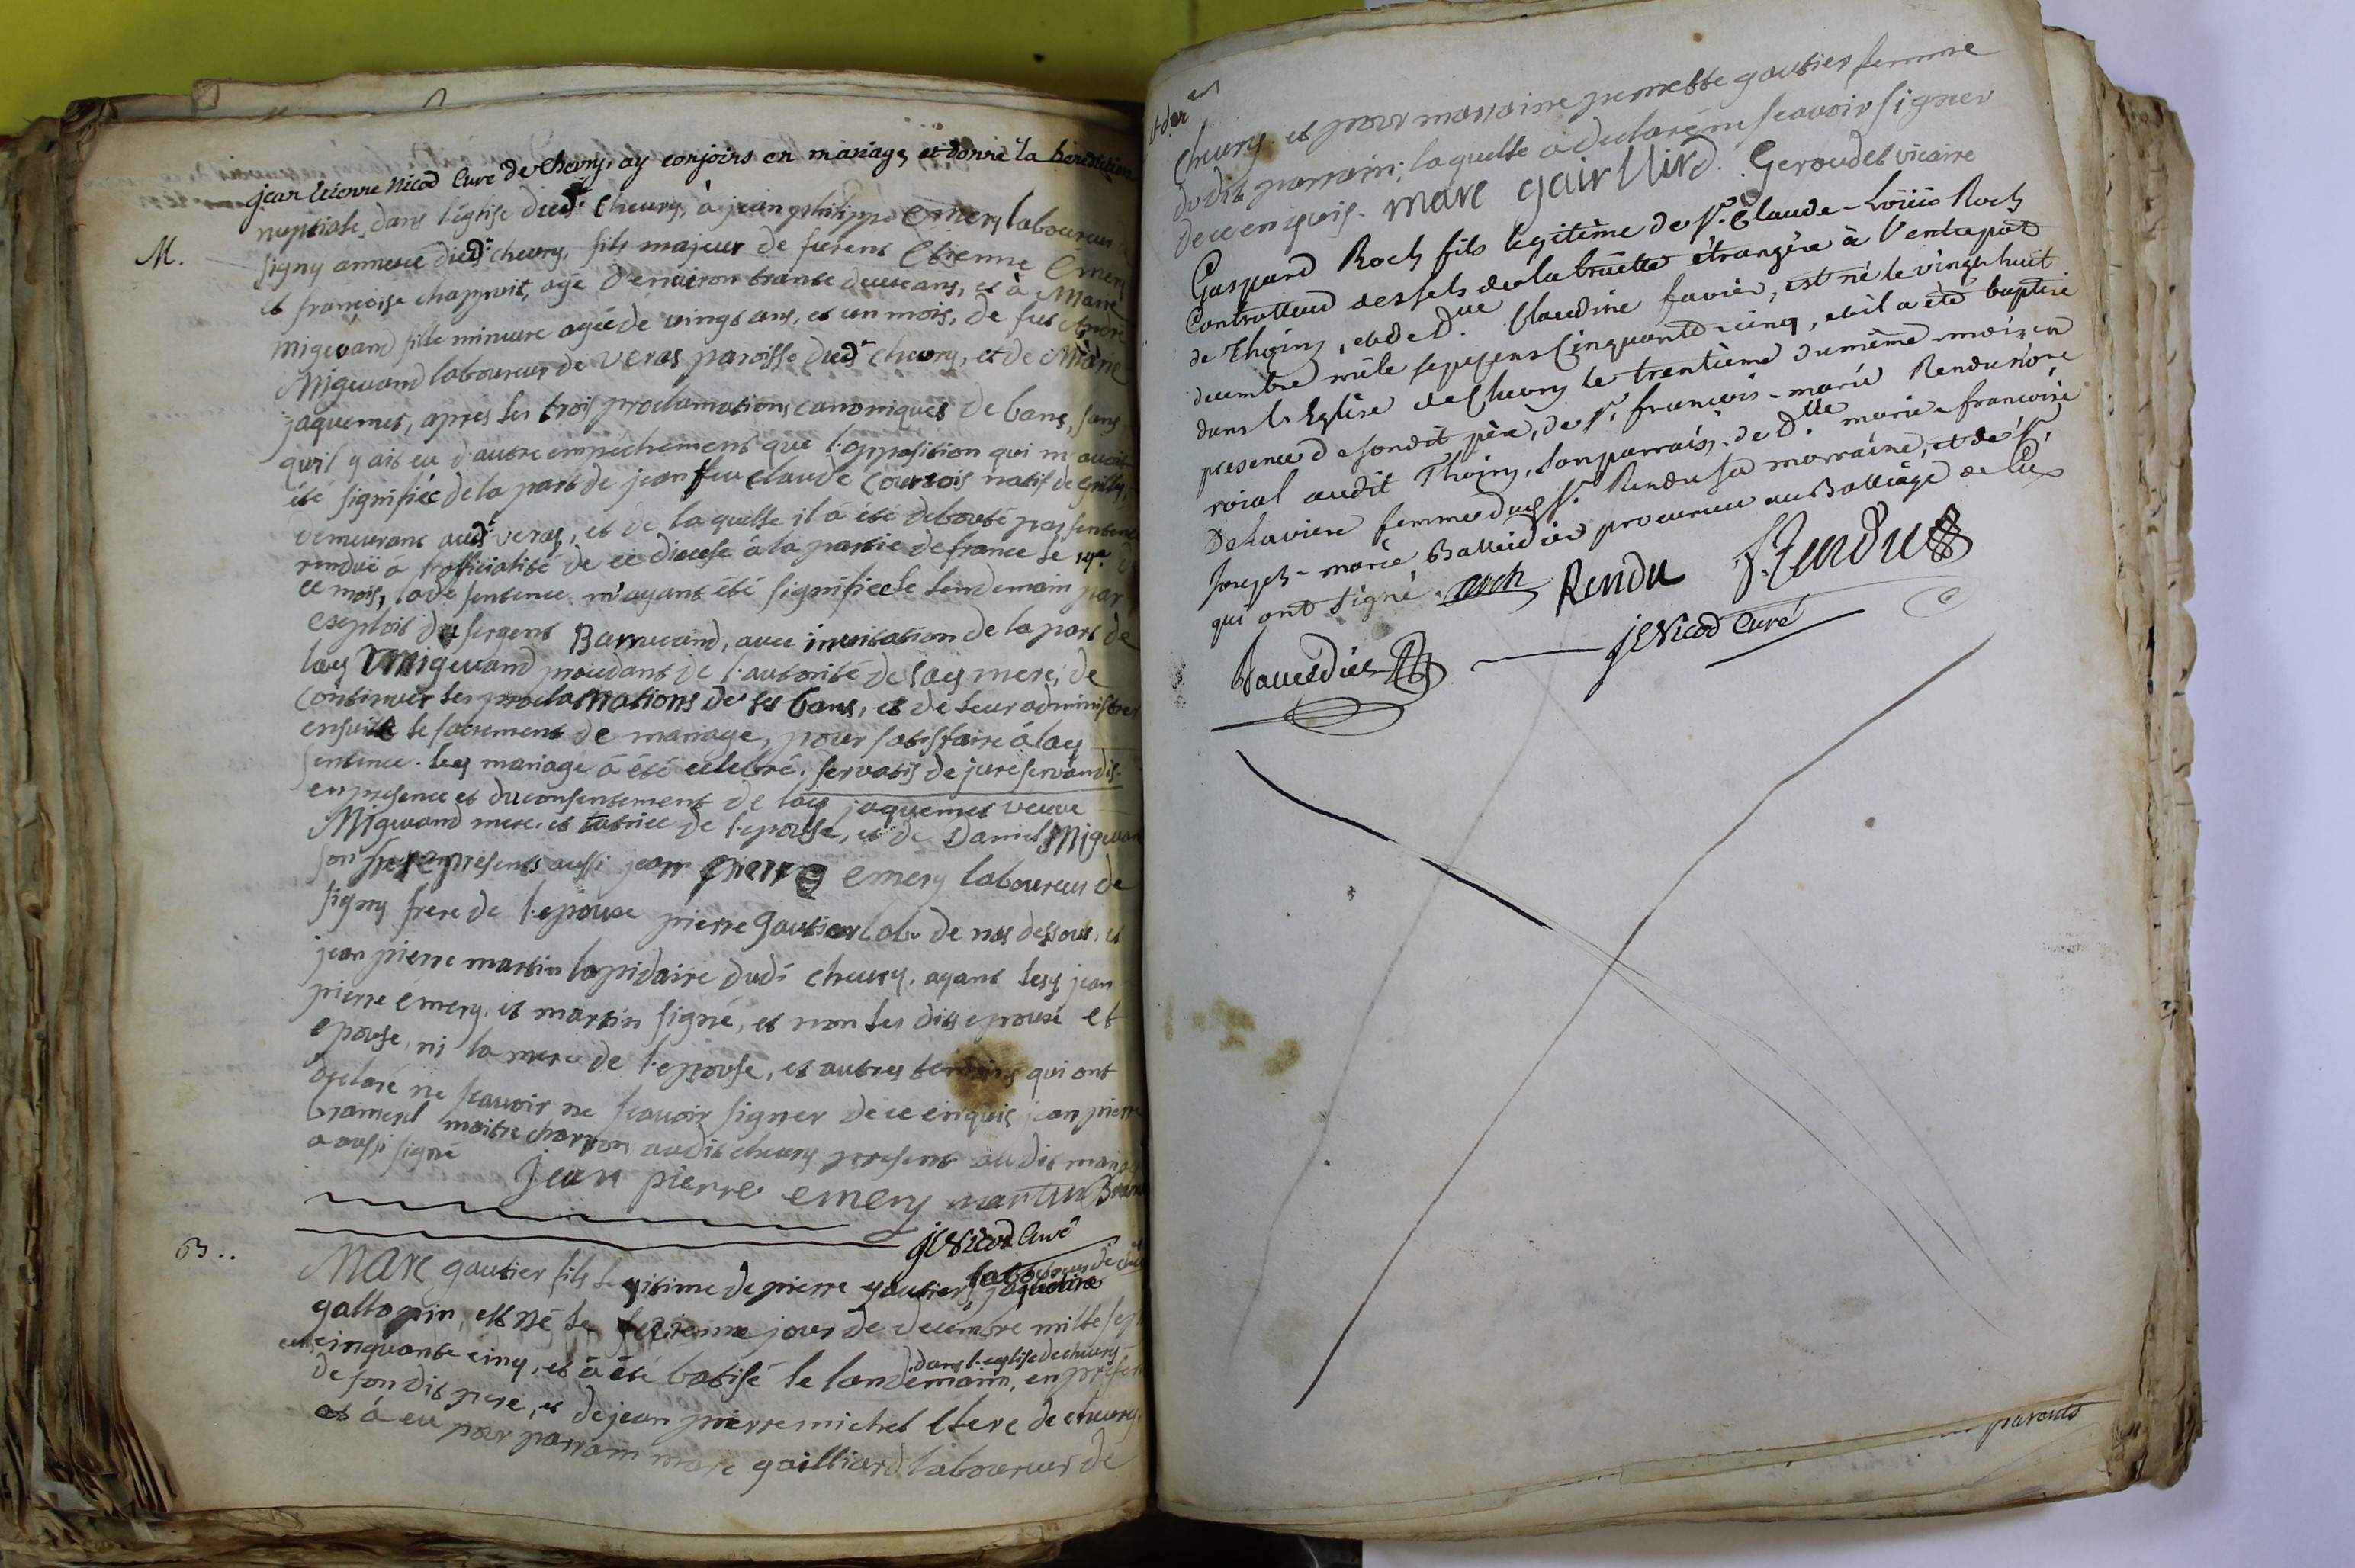 jean Etienne Nicod Curé de Chevry, ay conjoins en mariage, et donné la benediction
nuptiale, dans l'église dud.t Chevry, à jean philippe Emery laboureur
M.
signy annexe dud.t chevry, fils majeur de furent Etienne Emery
et françoise chappuit, agé d'environ trante deux ans, et à Marie
Miguand fille mineure agée de vingt ans, et un mois, de fut André
Miguand laboureur de veras paroisse dud.t chevry, et de Marie
jaquemet, après les trois proclamations canoniques de bans, sans
qu'il y ait eu d'autre empêchement que l'opposition qui m'avoit
été signifiée de la part de jean feu claude Courtois natif de Grilly,
demeurant aud.t veras, et de laquelle il a été debouté par sentence
rendüe à l'officialité de ce diocese à la partie de france le
ce mois, lade sentence m'ayant été signifiée le lendemain par
exploit du sergent Barrucand, avec invitation de la part de
lad Miguand procedant de l'autorité de sad mere, de
continuer les proclamations de ses bans, et de leur administrer
ensuite le sacrement de mariage, pour satisfaire à lad
sentence. led mariage à été celebré. servatis de jure servandis.
en presence et du consentement de lad jaquemet veuve
Miguand mere et tutrice de l'epouse, et de Daniel Miguand
son frere presents aussi jean pierre emery laboureur de
signy frere de l'epoux pierre gautier lab. de nas dessous, et
jean pierre martin lapidaire dud.t chevry, ayant lesd jean
pierre emery, et martin signé, et non les dits epoux et
epouse, ni la mere de l'epouse, et autres temoins qui ont
declaré ne scavoir ne scavoir signer de ce enquis jean pierre
maitre charron audit chevry present audit mariage
a aussi signé
jean pierre emery martin
JE Nicod Curé
B..
MARC gautier fils legitime de pierre gautier laboureur de
jaquemine
gallopin, est né le jour de decembre mille sept
cent cinquante cinq, et à été batisé le landemain, dans l'eglise de chevry en presence
de son dit pere, et de jean pierre michel clerc de chevry,
et à eu pour parrain marc gailliard laboureur de
chevry et pour marraine pernette gautier femme
dudit parrain; laquelle a declaré ne scavoir signer
de ce enquis. marc gairllird. Geroudet vicaire
Gaspard Roch fils legitime de S.r Claude-Loüis Roch
Controlleur des sels de la traitte etrangère à l'entrepot
de Thoiry, et de D.ue Claudine favier, est né le vingt huit
decembre mile sept cens cinquante-cinq, et il a été baptisé
dans l'Eglise de Chevry le trentième du même mois en
presence de son dit père, de S.r françois-marie Rendu no.re
roïal audit Thoiry, son parrain, de D.lle marie-françoise
Delaviere femme dud S.r Rendu sa marraine, et de S.r
Joseph-marie Balleidier procureur au Balliage de Gex
qui ont signé. Roch Rendu f. Rendu
Balleidier JE Nicod Curé
parents